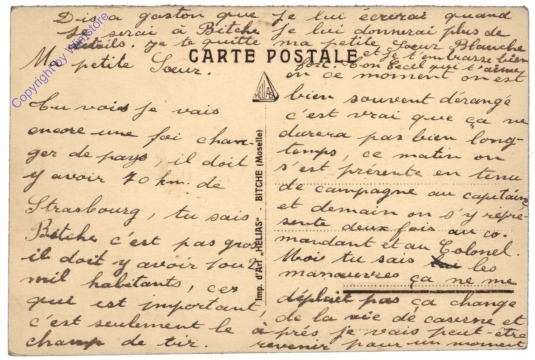 Dis a gaston que je lui écrirai quand
je serai à Bitche je lui donnerai plus de
détails. je te quitte ma petite Soeur Blanche
et je t'embrasse bien
fort. Ton Cecel qui t'aime
CARTE POSTALE
Ma petite Soeur.
Tu vois je vais
encore une foi chan-
ger de pays, il doit
y avoir 70 km. de
Strasbourg, tu sais
Bitche c'est pas gros
il doit y avoir 1 ou 2
mil habitants, ce
que est important,
c'est seulement le
champ de tir.
en ce moment on est
bien souvent dérangé
c'est vrai que ça ne
durera pas bien long-
temps, ce matin on
s'est présenté en tenu
de campagne au capitain
et demain on s'y repré-
sente deux fois au co-
mandant et au Colonel.
Mois tu sais les
manœuvres ça ne me
déplait pas ça change
de la vie de caserne et
après je vais peut-être
revenir pour un moment
Imp. d'Art "HELIAS" BITCHE (Moselle)